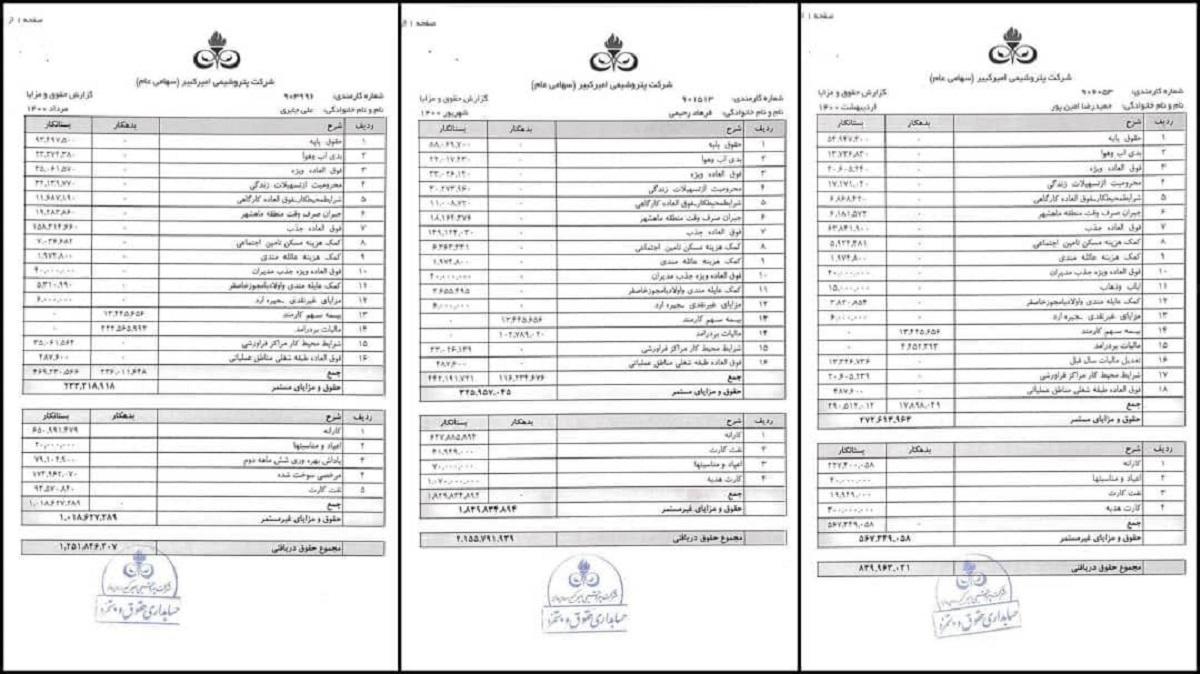 صفحه ۱ از
شرکت پتروشیمی امیرکبیر (سهامی عام)
شماره کارمندی: ۹۰۳۹۹۱ گزارش حقوق و مزایا
نام و نام خانوادگی: علی جابری مرداد ۱۴۰۰
ردیف شرح بدهکار بستانکار
۱ حقوق پایه ۰ ۹۳,۴۹۷,۵۰۰
۲ بدی آب وهوا ۰ ۲۳,۳۷۴,۳۸۰
۳ فوق العاده ویژه ۰ ۳۵,۰۶۱,۵۷۰
۴ محرومیت ازتسهیلات زندگی ۰ ۳۲,۱۳۹,۷۷۰
۵ شرایطمحیطکار_فوق العاده کارگاهی ۰ ۱۱,۶۸۷,۱۹۰
۶ جبران صرف وقت منطقه ماهشهر ۰ ۱۹,۲۸۳,۸۶۰
۷ فوق العاده جذب ۰ ۱۵۸,۳۹۴,۶۶۰
۸ کمک هزینه مسکن تامین اجتماعی ۰ ۷,۰۳۴,۶۸۲
۹ کمک هزینه عائله مندی ۰ ۱,۹۷۴,۸۰۰
۱۰ فوق العاده ویژه جذب مدیران ۰ ۴۰,۰۰۰,۰۰۰
۱۱ کمک عایله مندی واولادبامجوزخاصفر ۰ ۵,۳۱۰,۹۹۰
۱۲ مزایای غیرنقدی _جیره ارد ۰ ۶,۰۰۰,۰۰۰
۱۳ بیمه سهم کارمند ۱۳,۴۴۵,۶۵۶ ۰
۱۴ مالیات بردرامد ۲۲۲,۵۶۵,۹۹۲ ۰
۱۵ شرایط محیط کار مراکز فراورشی ۰ ۳۵,۰۶۱,۵۶۲
۱۶ فوق العاده طبقه شغلی مناطق عملیاتی ۰ ۴۸۷,۶۰۰
جمع ۲۳۶,۰۱۱,۶۴۸ ۴۶۹,۲۳۰,۵۶۶
حقوق و مزایای مستمر ۲۳۳,۲۱۸,۹۱۸
ردیف شرح بدهکار بستانکار
۱ کارانه ۶۵۰,۹۹۱,۴۷۹
۲ اعیاد و مناسبتها ۲۰,۰۰۰,۰۰۰
۳ پاداش بهره وری شش ماهه دوم ۷۹,۱۰۲,۹۰۰
۴ مرخصی سوخت شده ۱۷۳,۹۶۲,۰۷۰
۵ نفت کارت ۹۴,۵۷۰,۸۴۰
جمع ۰ ۱,۰۱۸,۶۲۷,۲۸۹
حقوق و مزایای غیرمستمر ۱,۰۱۸,۶۲۷,۲۸۹
مجموع حقوق دریافتی ۱,۲۵۱,۸۴۶,۲۰۷
حسابداری حقوق و دستمزد
صفحه ۱ از
شرکت پتروشیمی امیرکبیر (سهامی عام)
شماره کارمندی: ۹۰۱۵۱۳ گزارش حقوق و مزایا
نام و نام خانوادگی: فرهاد رحیمی شهریور ۱۴۰۰
ردیف شرح بدهکار بستانکار
۱ حقوق پایه ۰ ۵۸,۰۶۹,۷۰۰
۲ بدی آب وهوا ۰ ۲۲,۰۱۷,۴۳۰
۳ فوق العاده ویژه ۰ ۳۳,۰۲۶,۱۳۰
۴ محرومیت ازتسهیلات زندگی ۰ ۳۰,۲۷۳,۹۶۰
۵ شرایطمحیطکار_فوق العاده کارگاهی ۰ ۱۱,۰۰۸,۷۲۰
۶ جبران صرف وقت منطقه ماهشهر ۰ ۱۸,۱۶۴,۳۷۶
۷ فوق العاده جذب ۰ ۱۴۹,۱۲۴,۰۳۰
۸ کمک هزینه مسکن تامین اجتماعی ۰ ۶,۴۶۳,۴۴۱
۹ کمک هزینه عائله مندی ۰ ۱,۹۷۴,۸۰۰
۱۰ فوق العاده ویژه جذب مدیران ۰ ۴۰,۰۰۰,۰۰۰
۱۱ کمک عایله مندی واولادبامجوزخاصفر ۰ ۳,۶۵۵,۴۹۵
۱۲ مزایای غیرنقدی _جیره ارد ۰ ۶,۰۰۰,۰۰۰
۱۳ بیمه سهم کارمند ۱۳,۴۴۵,۶۵۶ ۰
۱۴ مالیات بردرامد ۱۰۲,۷۸۹,۰۲۰ ۰
۱۵ شرایط محیط کار مراکز فراورشی ۰ ۳۳,۰۲۶,۱۴۹
۱۶ فوق العاده طبقه شغلی مناطق عملیاتی ۰ ۴۸۷,۶۰۰
جمع ۱۱۶,۲۳۴,۶۷۶ ۴۴۲,۱۹۱,۷۲۱
حقوق و مزایای مستمر ۳۲۵,۹۵۷,۰۴۵
ردیف شرح بدهکار بستانکار
۱ کارانه ۶۲۷,۸۸۵,۸۹۴
۲ نفت کارت ۶۱,۹۴۹,۰۰۰
۳ اعیاد و مناسبتها ۷۰,۰۰۰,۰۰۰
۴ کارت هدیه ۱,۰۷۰,۰۰۰,۰۰۰
جمع ۰ ۱,۸۲۹,۸۳۴,۸۹۴
حقوق و مزایای غیرمستمر ۱,۸۲۹,۸۳۴,۸۹۴
مجموع حقوق دریافتی ۲,۱۵۵,۷۹۱,۹۳۹
حسابداری حقوق و دستمزد
صفحه ۱ از
شرکت پتروشیمی امیرکبیر (سهامی عام)
شماره کارمندی: ۹۰۶۰۵۳ گزارش حقوق و مزایا
نام و نام خانوادگی: حمیدرضا امین پور اردیبهشت ۱۴۰۰
ردیف شرح بدهکار بستانکار
۱ حقوق پایه ۰ ۵۴,۹۴۷,۳۰۰
۲ بدی آب وهوا ۰ ۱۳,۷۳۶,۸۳۰
۳ فوق العاده ویژه ۰ ۲۰,۶۰۵,۲۴۰
۴ محرومیت ازتسهیلات زندگی ۰ ۱۷,۱۷۱,۰۲۰
۵ شرایطمحیطکار_فوق العاده کارگاهی ۰ ۶,۸۶۸,۴۲۰
۶ جبران صرف وقت منطقه ماهشهر ۰ ۶,۱۸۱,۵۷۳
۷ فوق العاده جذب ۰ ۶۳,۸۴۱,۹۰۰
۸ کمک هزینه مسکن تامین اجتماعی ۰ ۵,۹۲۳,۴۸۱
۹ کمک هزینه عائله مندی ۰ ۱,۹۷۴,۸۰۰
۱۰ فوق العاده ویژه جذب مدیران ۰ ۴۰,۰۰۰,۰۰۰
۱۱ ایاب وذهاب ۰ ۱۵,۰۰۰,۰۰۰
۱۲ کمک عایله مندی واولادبامجوزخاصفر ۰ ۳,۸۳۰,۸۵۴
۱۳ مزایای غیرنقدی _جیره ارد ۰ ۶,۰۰۰,۰۰۰
۱۴ بیمه سهم کارمند ۱۳,۴۴۵,۶۵۶ ۰
۱۵ مالیات بردرامد ۴,۴۵۲,۳۹۳ ۰
۱۶ تعدیل مالیات سال قبل ۰ ۱۳,۳۴۶,۷۳۶
۱۷ شرایط محیط کار مراکز فراورشی ۰ ۲۰,۶۰۵,۲۳۹
۱۸ فوق العاده طبقه شغلی مناطق عملیاتی ۰ ۴۸۷,۶۰۰
جمع ۱۷,۸۹۸,۰۴۹ ۲۹۰,۵۱۲,۰۱۲
حقوق و مزایای مستمر ۲۷۲,۶۱۳,۹۶۳
ردیف شرح بدهکار بستانکار
۱ کارانه ۲۲۷,۴۰۰,۰۵۸
۲ اعیاد و مناسبتها ۲۰,۰۰۰,۰۰۰
۳ نفت کارت ۱۹,۹۴۹,۰۰۰
۴ کارت هدیه ۳۰۰,۰۰۰,۰۰۰
جمع ۰ ۵۶۷,۳۴۹,۰۵۸
حقوق و مزایای غیرمستمر ۵۶۷,۳۴۹,۰۵۸
مجموع حقوق دریافتی ۸۳۹,۹۶۳,۰۲۱
حسابداری حقوق و دستمزد